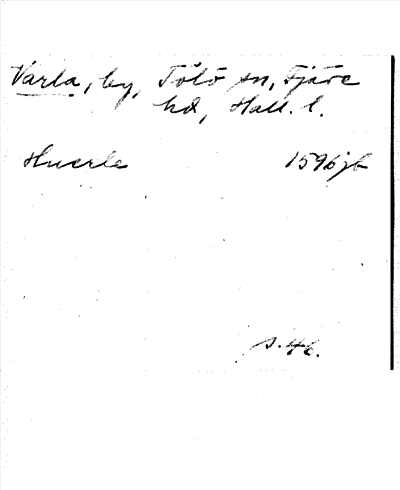 Varla, by, Tölö sn, Fjäre
hd, Hall. l.
Huerle 1596 jb
s. 46.